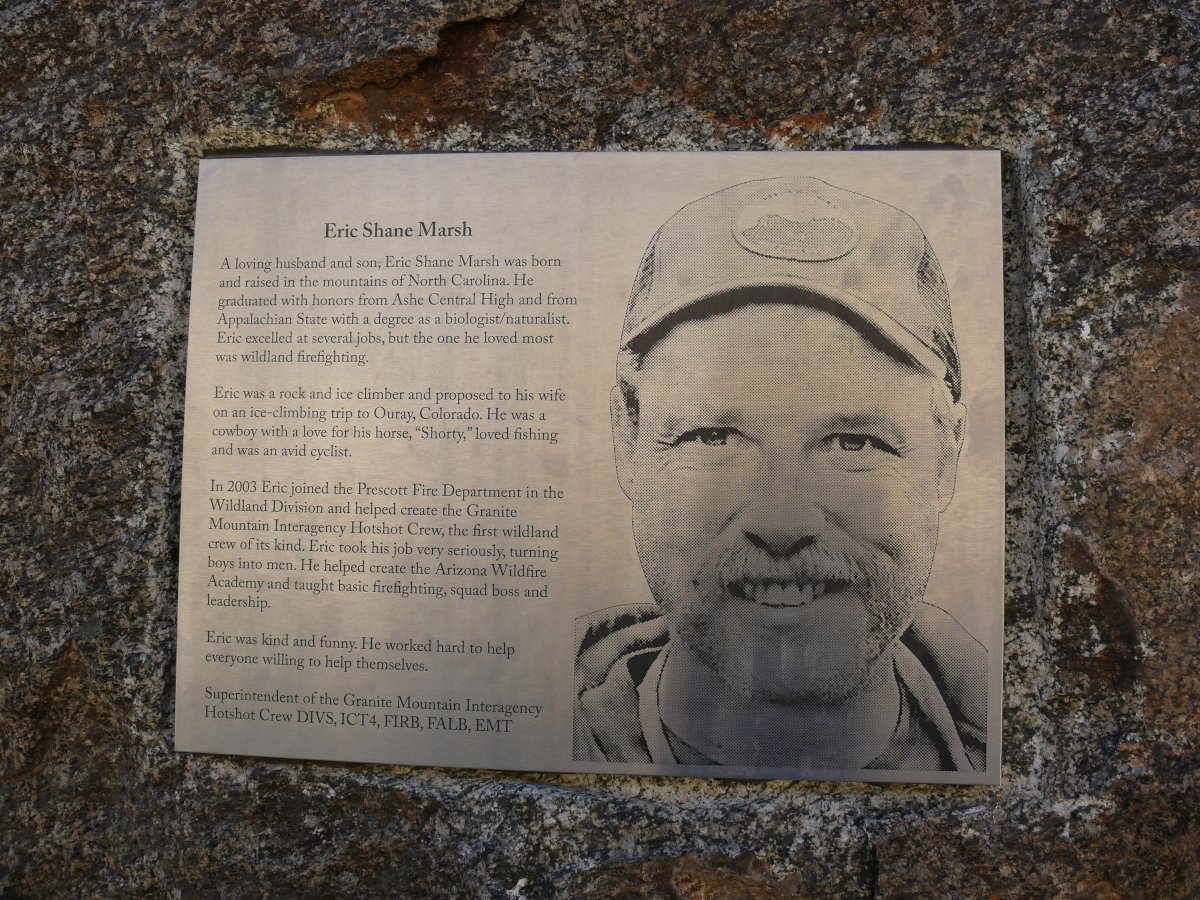 Eric Shane Marsh
A loving husband and son, Eric Shane Marsh was born
and raised in the mountains of North Carolina. He
graduated with honors from Ashe Central High and from
Appalachian State with a degree as a biologist/naturalist.
Eric excelled at several jobs, but the one he loved most
was wildland firefighting.
Eric was a rock and ice climber and proposed to his wife
on an ice-climbing trip to Ouray, Colorado. He was a
cowboy with a love for his horse, “Shorty,” loved fishing
and was an avid cyclist.
In 2003 Eric joined the Prescott Fire Department in the
Wildland Division and helped create the Granite
Mountain Interagency Hotshot Crew, the first wildland
crew of its kind. Eric took his job very seriously, turning
boys into men. He helped create the Arizona Wildfire
Academy and taught basic firefighting, squad boss and
leadership.
Eric was kind and funny. He worked hard to help
everyone willing to help themselves.
Superintendent of the Granite Mountain Interagency
Hotshot Crew DIVS, ICT4, FIRB, FALB, EMT